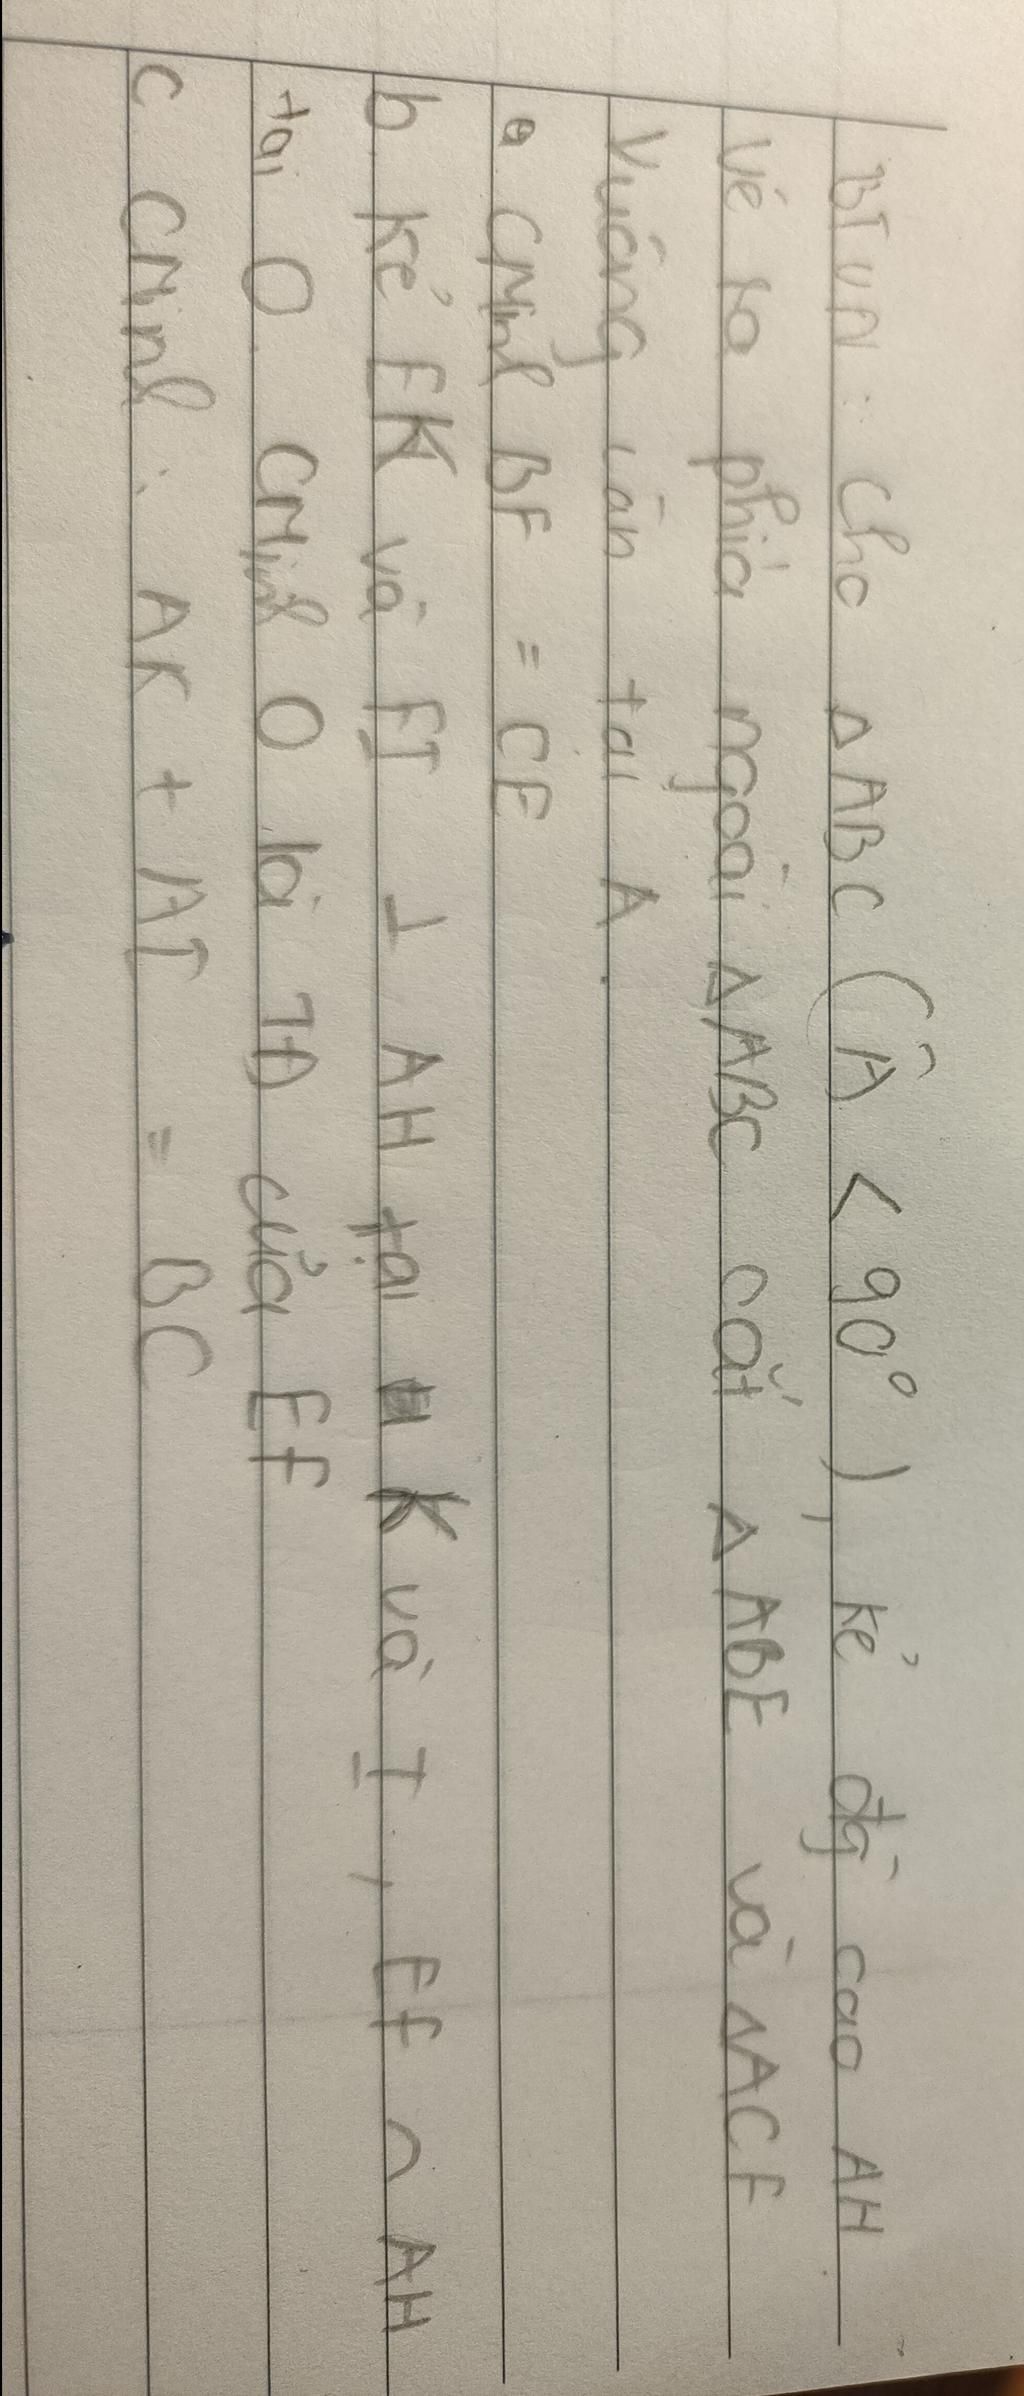 BTVN: Cho △ABC (Â < 90°), kẻ đg cao AH
Vẽ ra phía ngoài △ABC các △ABE và △ACF
Vuông cân tại A.
a CMinh BF = CE
b. Kẻ EK và FI ⊥ AH tại K và I, EF ∩ AH
tại O. CMinh O là TĐ của EF
c CMinh: AK + AI = BC